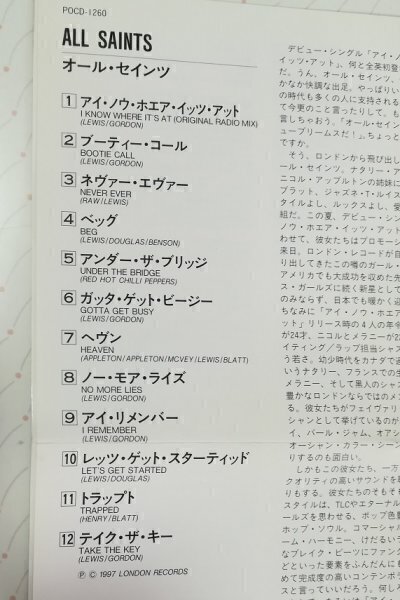 POCD-1260
ALL SAINTS
オール・セインツ
1 アイ・ノウ・ホエア・イッツ・アット
I KNOW WHERE IT'S AT (ORIGINAL RADIO MIX)
(LEWIS/GORDON)
2 ブーティー・コール
BOOTIE CALL
(LEWIS/GORDON)
3 ネヴァー・エヴァー
NEVER EVER
(RAW/LEWIS)
4 ベッグ
BEG
(LEWIS/DOUGLAS/BENSON)
5 アンダー・ザ・ブリッジ
UNDER THE BRIDGE
(RED HOT CHILI PEPPERS)
6 ガッタ・ゲット・ビージー
GOTTA GET BUSY
(LEWIS/GORDON)
7 ヘヴン
HEAVEN
(APPLETON/APPLETON/MCVEY/LEWIS/BLATT)
8 ノー・モア・ライズ
NO MORE LIES
(LEWIS/GORDON)
9 アイ・リメンバー
I REMEMBER
(LEWIS/GORDON)
10 レッツ・ゲット・スターティッド
LET'S GET STARTED
(LEWIS/DOUGLAS)
11 トラップト
TRAPPED
(HENRY/BLATT)
12 テイク・ザ・キー
TAKE THE KEY
(LEWIS/GORDON)
Ⓟ © 1997 LONDON RECORDS
デビュー・シングル「アイ・ノ
イッツ・アット」、何と全英初登
だ。うん、オール・セインツ、
かなか快調な出足。やっぱりい
の時代も多くの人に支持される
て今更のこと言ったりして。も
言しちゃおう。「オール・セイン
ューブリームスだ!」。ちょっと
ですか。
そう、ロンドンから飛び出し
ール・セインツ。ナタリー・ア
ニコル・アップルトンの姉妹に
ブラット、ジャズネ・T・ルイス
タイルよし、ルックスよし、愛
組だ。この夏、デビュー・シン
ノウ・ホエア・イッツ・アット
わせて、彼女たちはプロモーシ
来日。ロンドン・レコードが自
り出してきたこの噂のガール・
アメリカでも大成功を収めた先
ス・ガールズに続く新星として
のみならず、日本でも暖かく迎
ちなみに「アイ・ノウ・ホエア
ット」リリース時の4人の年令
が24才、ニコルとメラニーが22
イティング/ラップ担当シャズ
う若さ。幼少時代をカナダで過
いうナタリー、フランスでの生
メラニー、そして黒人のシャズ
豊かなロンドンならではのメン
る。彼女たちがフェイヴァリッ
シャンとして挙げているのがビ
イ、パール・ジャム、オアシ
オーシャン・カラー・シーン
りするのも面白い。
しかもこの彼女たち、一方
クオリティの高いサウンドを聴
りもする。彼女たちのそもそも
スタイルは、TLCやエターナル
ールズを思わせる、ポップ色豊
ホップ・ソウル。コマーシャル
ーム・ハーモニー、けだるいラ
なブレイク・ビーツにファンク
どといった要素をふんだんにも
めて完成度の高いコンテンポラ
スと言っていいだろう。何しろ